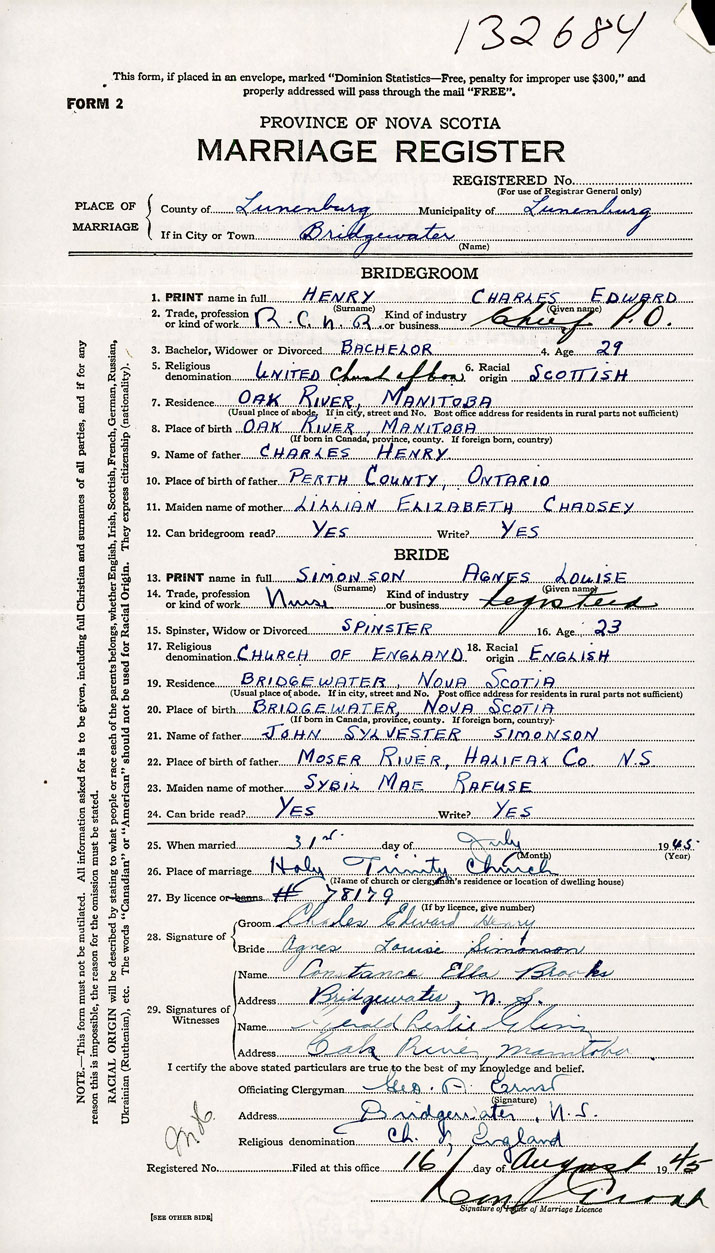 132684
This form, if placed in an envelope, marked "Dominion Statistics—Free, penalty for improper use $300," and
properly addressed will pass through the mail "FREE".
FORM 2
PROVINCE OF NOVA SCOTIA
MARRIAGE REGISTER
REGISTERED No.
(For use of Registrar General only)
PLACE OF MARRIAGE
County of Lunenburg Municipality of Lunenburg
If in City or Town Bridgewater
(Name)
BRIDEGROOM
1. PRINT name in full HENRY CHARLES EDWARD
(Surname) (Given name)
2. Trade, profession or kind of work R.C.N.R. Kind of industry or business Chief P.O.
3. Bachelor, Widower or Divorced BACHELOR 4. Age 29
5. Religious denomination UNITED Church of 6. Racial origin SCOTTISH
7. Residence OAK RIVER, MANITOBA
(Usual place of abode. If in city, street and No. Post office address for residents in rural parts not sufficient)
8. Place of birth OAK RIVER, MANITOBA
(If born in Canada, province, county. If foreign born, country)
9. Name of father CHARLES HENRY
10. Place of birth of father PERTH COUNTY, ONTARIO
11. Maiden name of mother LILLIAN ELIZABETH CHADSEY
12. Can bridegroom read? YES Write? YES
BRIDE
13. PRINT name in full SIMONSON AGNES LOUISE
(Surname) (Given name)
14. Trade, profession or kind of work Nurse Kind of industry or business
15. Spinster, Widow or Divorced SPINSTER 16. Age 23
17. Religious denomination CHURCH OF ENGLAND 18. Racial origin ENGLISH
19. Residence BRIDGEWATER, NOVA SCOTIA
(Usual place of abode. If in city, street and No. Post office address for residents in rural parts not sufficient)
20. Place of birth BRIDGEWATER, NOVA SCOTIA
(If born in Canada, province, county. If foreign born, country)
21. Name of father JOHN SYLVESTER SIMONSON
22. Place of birth of father MOSER RIVER, HALIFAX CO. N.S
23. Maiden name of mother SYBIL MAE RAFUSE
24. Can bride read? YES Write? YES
25. When married 31st day of July 1945
(Month) (Year)
26. Place of marriage Holy Trinity Church
(Name of church or clergyman's residence or location of dwelling house)
27. By licence or banns # 78179
(If by licence, give number)
28. Signature of
Groom Charles Edward Henry
Bride Agnes Louise Simonson
29. Signatures of Witnesses
Name Constance Ella Brooks
Address Bridgewater, N.S.
Name Leslie
Address Oak River, Manitoba
I certify the above stated particulars are true to the best of my knowledge and belief.
Officiating Clergyman Geo. A. Ernst
(Signature)
Address Bridgewater, N.S.
Religious denomination Ch. of England
Registered No. Filed at this office 16 day of August 1945
Signature of Issuer of Marriage Licence
[SEE OTHER SIDE]
NOTE.—This form must not be mutilated. All information asked for is to be given, including full Christian and surnames of all parties, and if for any
reason this is impossible, the reason for the omission must be stated.
RACIAL ORIGIN will be described by stating to what people or race each of the parents belongs, whether English, Irish, Scottish, French, German, Russian,
Ukrainian (Ruthenian), etc. The words "Canadian" or "American" should not be used for Racial Origin. They express citizenship (nationality).